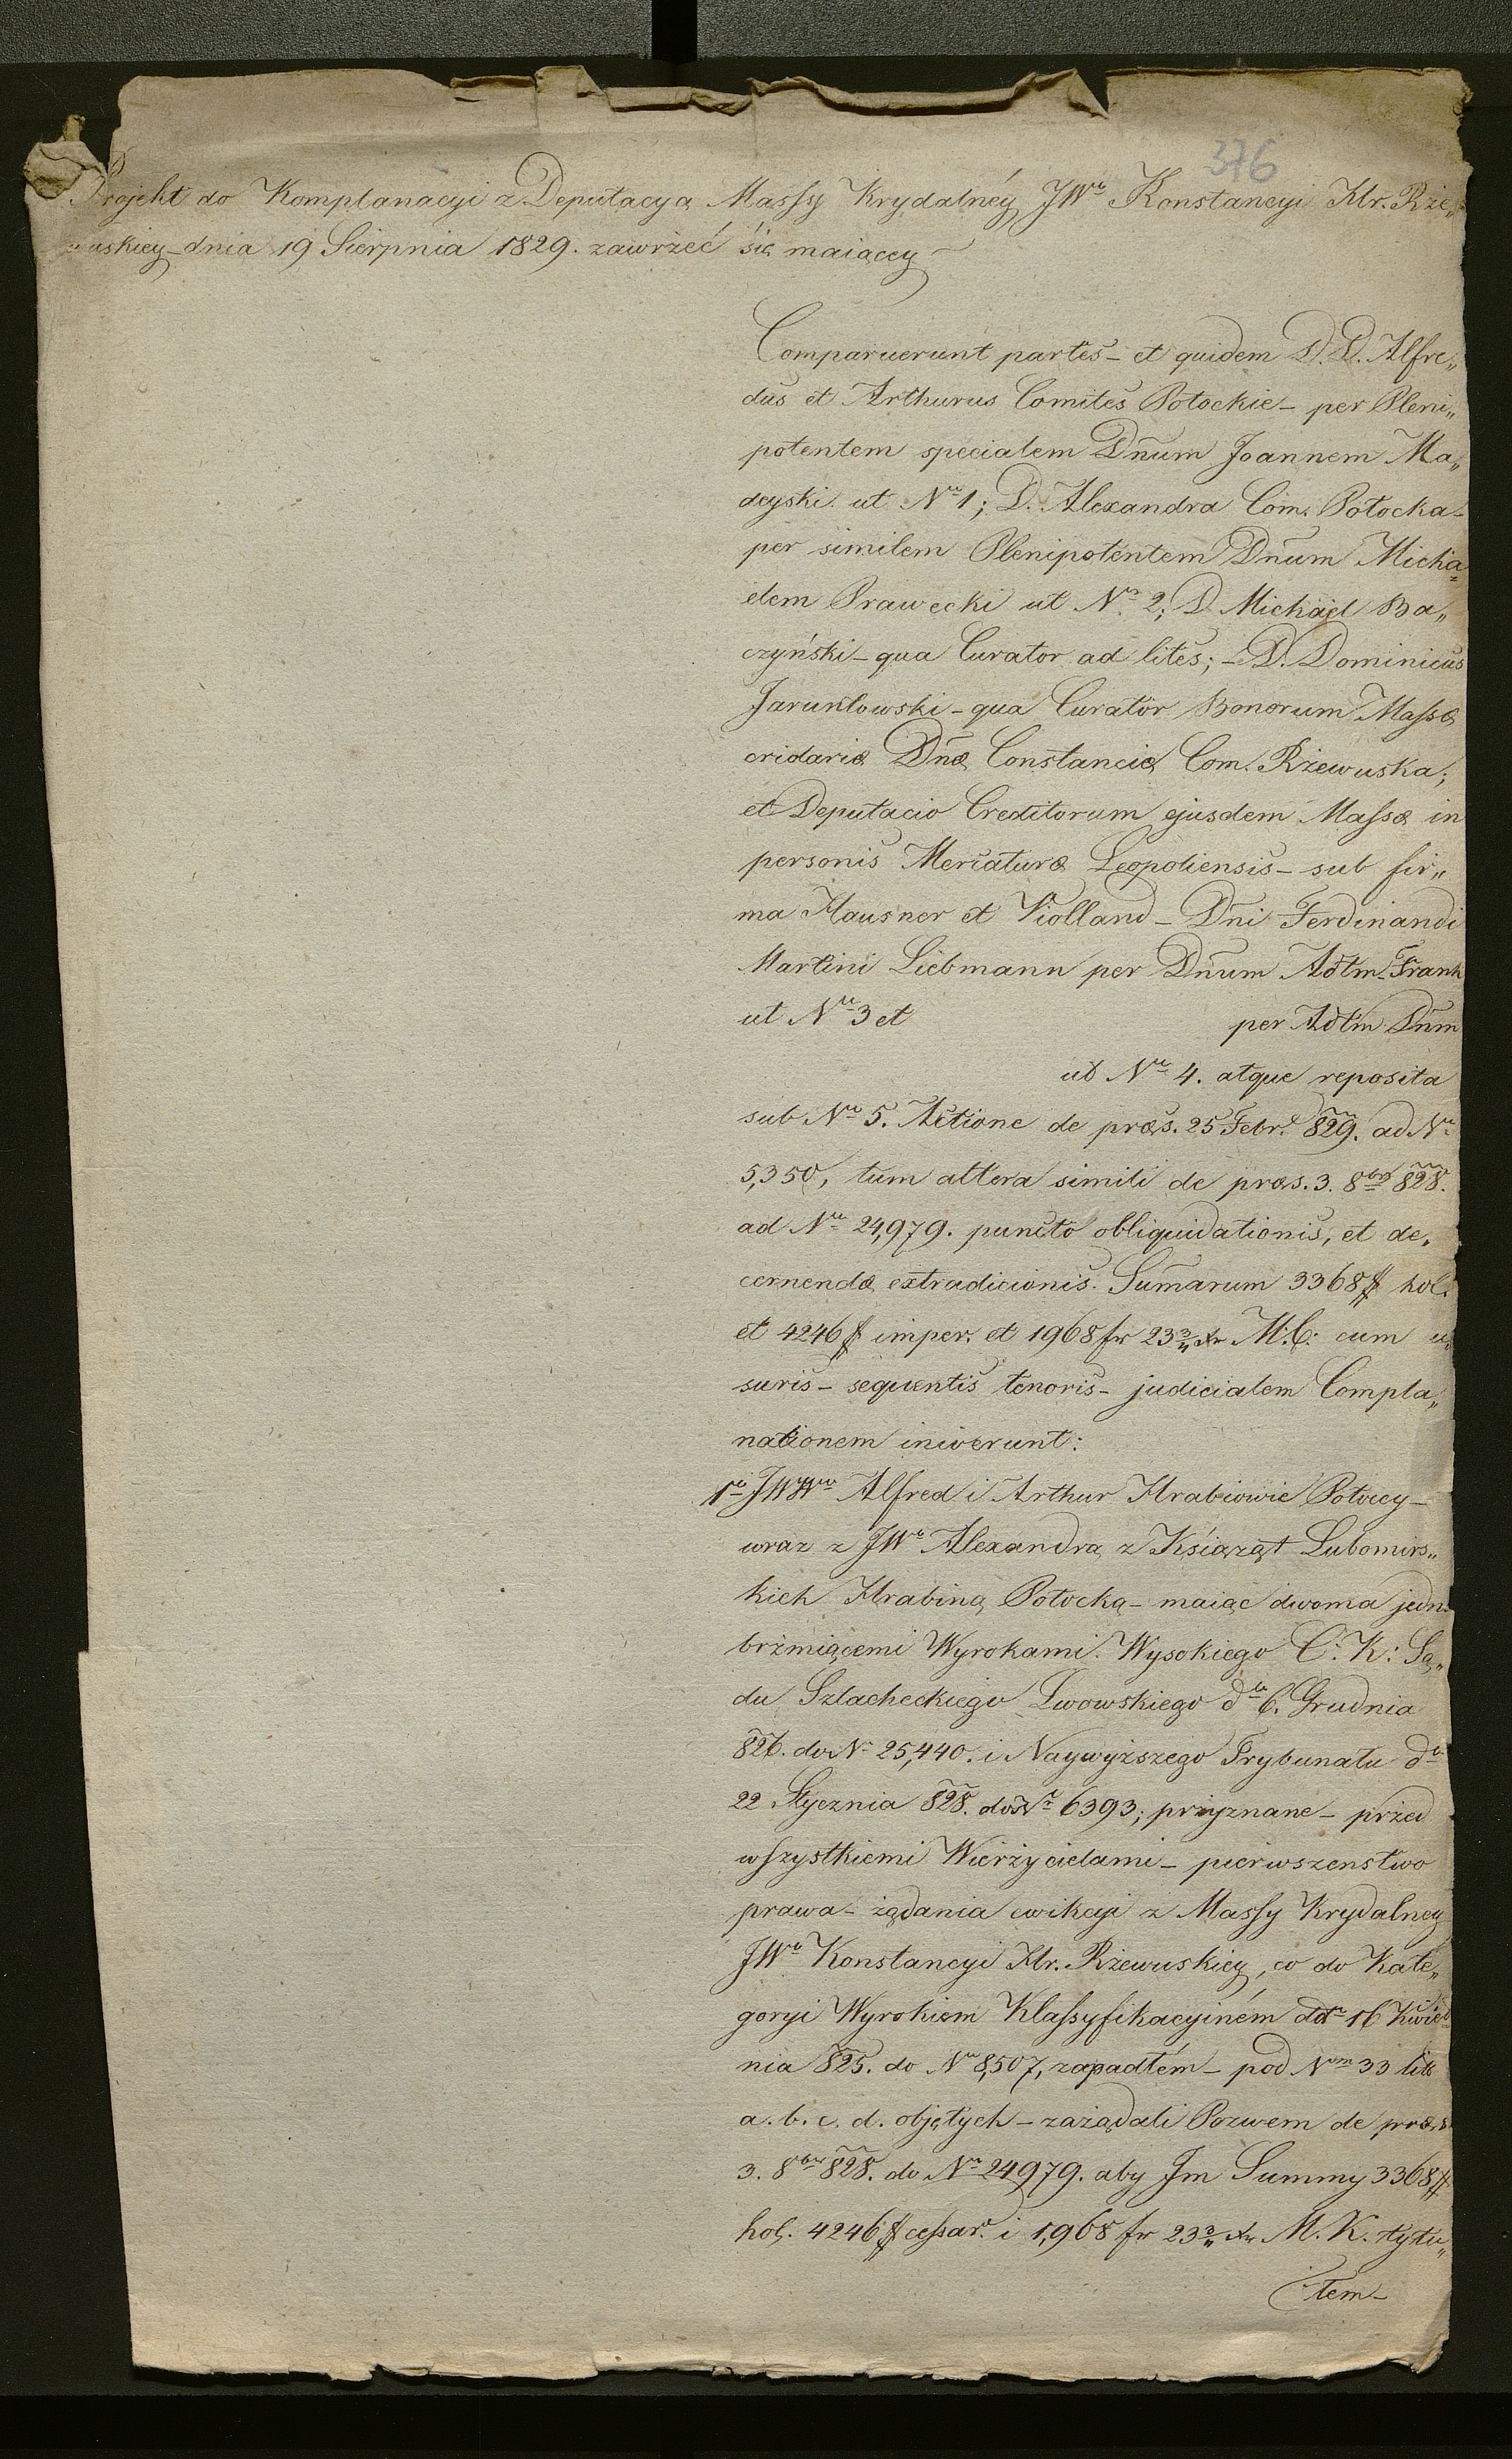 376
Projekt do Komplanacyi z Deputacyą Massy Krydalnéy JWº Konstancyi Hr. Rże„
wuskiey dnia 19 Sierpnia 1829. zawrżeć się maiącey
Comparuerunt partes – et quidem D.D. Alfre„
dus et Arthurus Comites Potockie – per Pleni„
potentem specialem Dnum Joannem Ma„
deyski ut Nº 1; D. Alexandra Com. Potocka –
per similem Plenipotentem Dnum Micha„
elem Prawecki ut Nº 2; D Michael Ba„
czyński – qua Curator ad lites; – D. Dominicus
Jaruntowski – qua Curator Bonorum Massæ
cridariæ Dnæ Constanciæ Com. Rżewuska;
et Deputacio Creditorum ejusdem Massæ in
personis Mercaturæ Leopoliensis – sub fir„
ma Hausner et Violland – Dni Ferdinandi
Martini Liebmann per Dnum Adtm Frank
ut Nº 3 et per Adtm Dnm
ut Nº 4. atque reposita
sub Nº 5. Actione de præs. 25 Febr. 829. ad Nº
5,350, tum altera simili de præs. 3. 8br 828.
ad Nº 24,979. puncto obliquidationis, et de„
cernendæ extradicionis. Sumarum 3368 # hol.
et 4246 # imper. et 1968 fr 23 3/„ xr M.C. cum u„
suris – sequentis tenoris – judicialem Compla„
nationem iniverunt:
1º JWWº Alfred i Arthur Hrabiowie Potoccy –
wraz z JWº Alexandrą z Książąt Lubomirs„
kich Hrabiną Potocką – maiąc dwoma jedno
brżmiącemi Wyrokami Wysokiego C: K: Są„
du Szlacheckiego Lwowskiego dº 6. Grudnia
826. do Nº 25,440. i Naywyższego Trybunału dº
22 Stycznia 828. do Nº 6393; przyznane – przed
wszystkiemi Wierżycielami – pierwszenstwo
prawa – żądania ewikcyi z Massy Krydalney
JWº Konstancyi Hr. Rżewuskiey, co do Kate„
goryi Wyrokiem Klassyfikacyiném ddtº 16 Kwiet„
nia 825. do Nº 8,507, zapadłém – pod Nrm 33 litt
a. b. c. d. objętych – zażądali Pozwem de præs
3. 8br 828. do Nº 24979. aby Im Summy 3368 #
hol. 4246 # cessar. i 1,968 fr 23 3/„ xr M. K. tytu„
łem –